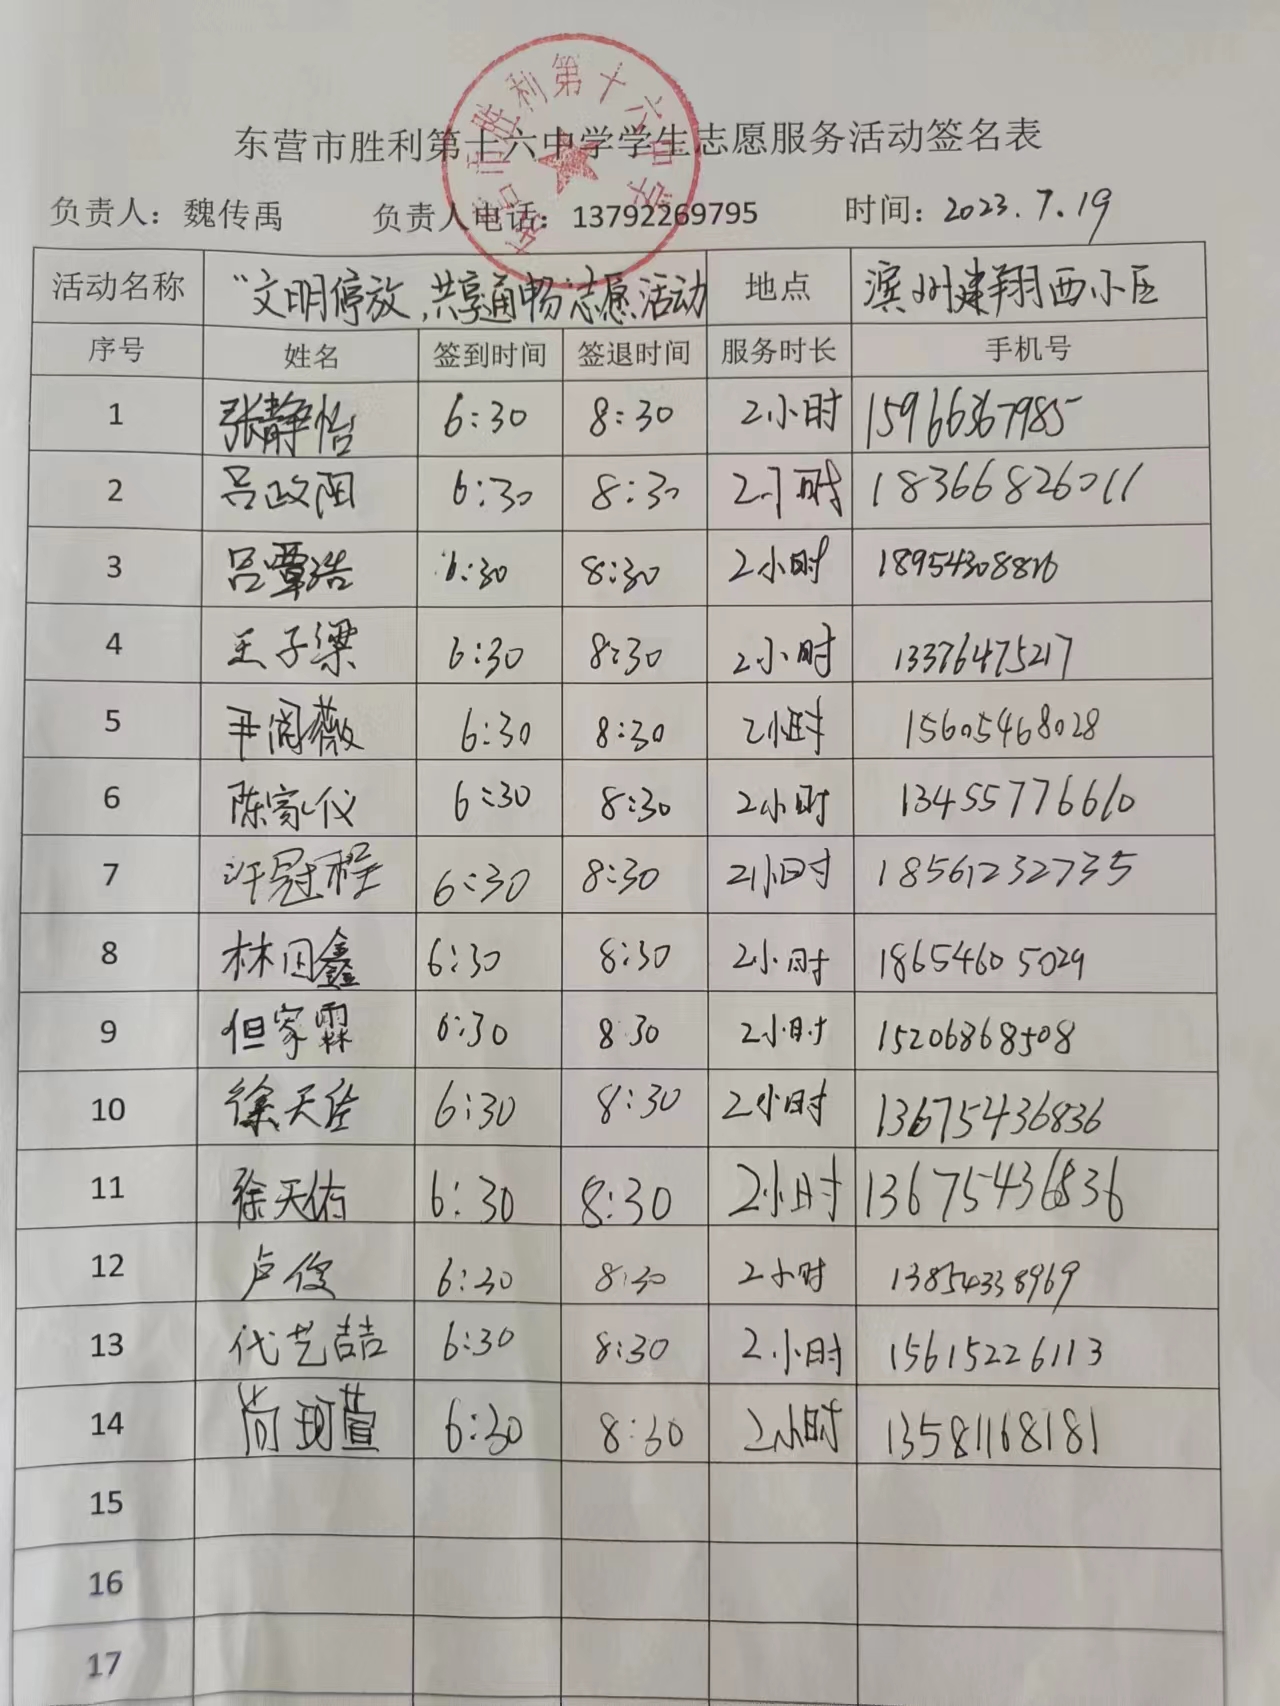 东营市胜利第十六中学
东营市胜利第十六中学学生志愿服务活动签名表
负责人：魏传禹 负责人电话：13792269795 时间：2023.7.19
活动名称 “文明停放，共享通畅”志愿活动 地点 滨州建翔西小区
序号 姓名 签到时间 签退时间 服务时长 手机号
1 张静怡 6:30 8:30 2小时 15966367985
2 吕政阳 6:30 8:30 2小时 18366826011
3 吕覃浩 6:30 8:30 2小时
4 王子梁 6:30 8:30 2小时 13376475217
5 尹阅薇 6:30 8:30 2小时 15605468028
6 陈家仪 6:30 8:30 2小时 13455776610
7 许冠程 6:30 8:30 2小时 18561232735
8 6:30 8:30 2小时 18654605029
9 但家霖 6:30 8:30 2小时 15206868508
10 6:30 8:30 2小时 13675436836
11 徐天佑 6:30 8:30 2小时 13675436836
12 卢俊 6:30 8:30 2小时 13854338969
13 代艺喆 6:30 8:30 2小时 15615226113
14 6:30 8:30 2小时 13581168181
15
16
17